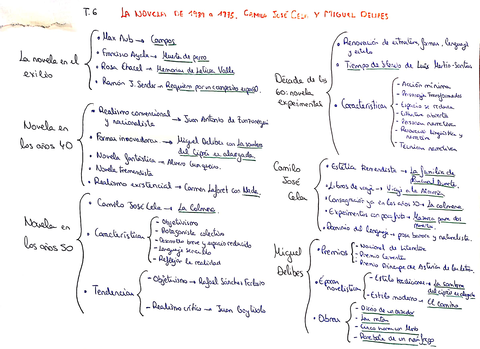 T.6 LA NOVELA DE 1939 A 1975. CAMILO JOSÉ CELA Y MIGUEL DELIBES
La novela en el exilio
• Max Aub → Campos
• Francisco Ayala → Muerte de perro
• Rosa Chacel → Memorias de Leticia Valle
• Ramón J. Sender → Requiem por un campesino español
Novela en los años 40
• Realismo convencional y nacionalista → Juan Antonio de Zunzunegui
• Formas innovadoras → Miguel Delibes con La sombra del Ciprés es alargada
• Novela fantástica → Álvaro Cunqueiro
• Novela Tremendista
• Realismo existencial → Carmen Laforet con Nada
Novela en los años 50
• Camilo José Cela → La Colmena
• Características
- Objetivismo
- Protagonista colectivo
- Desarrollo breve y espacio reducido
- Lenguaje sencillo
- Reflejar la realidad
• Tendencias
- Objetivismo → Rafael Sánchez Ferlosio
- Realismo crítico → Juan Goytisolo
Década de los 60: novela experimental
• Renovación de estructura, formas, lenguaje y estilo
• Tiempo de Silencio de Luis Martín-Santos
• Características
- Acción mínima
- Personaje transformado
- Espacio se reduce
- Estructura abierta
- Persona narrativa
- Recursos lingüísticos y
- Técnicas narrativas
Camilo José Cela
• Estética Tremendista → La familia de Pascual Duarte
• Libros de viaje → Viaje a la Alcarria
• Consagración ya en los años 50 → La colmena
• Experimentos con
• Dominio del lenguaje → pose barroco y naturalista
Miguel Delibes
• Premios
- Nacional de Literatura
- Premio Cervantes
- Premio Príncipe de Asturias de las letras
• Épocas novelísticas
- Estilo tradicional → La sombra del ciprés es alargada
- Estilo moderno → El camino
• Obras
- Diario de un cazador
- Las ratas
- Cinco horas con Mario
- Parábola de un náufrago